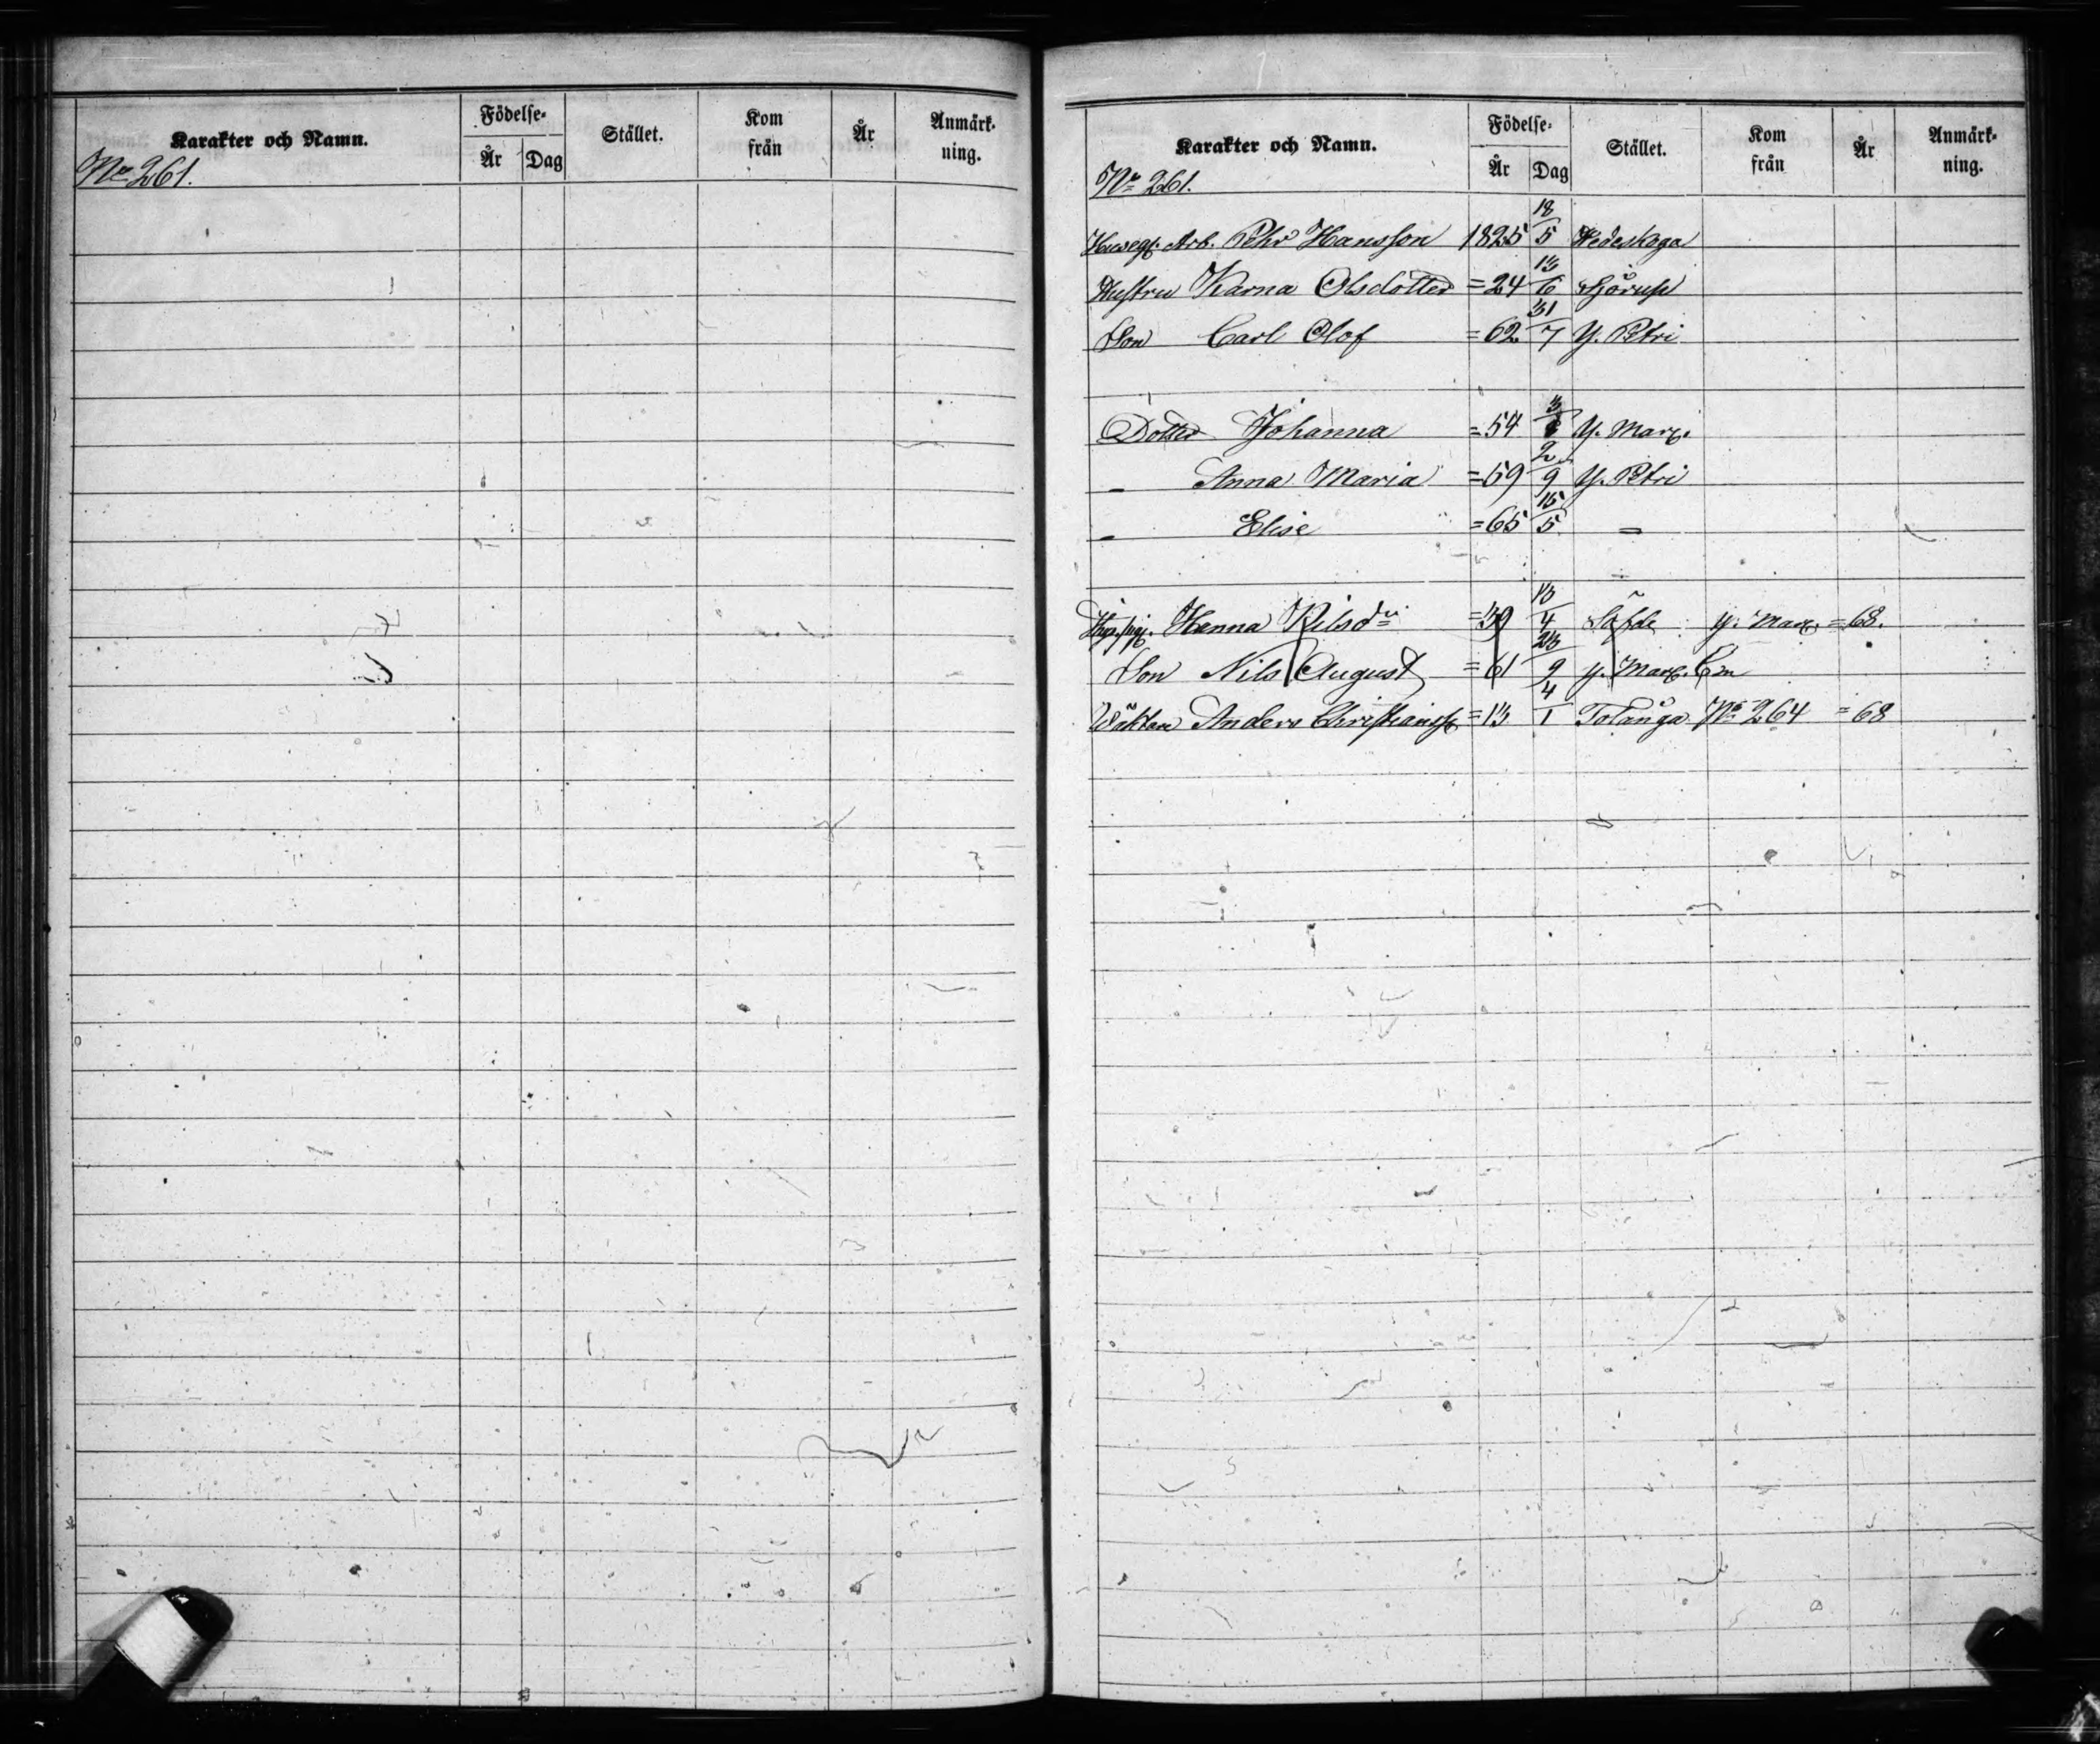 Karakter och Namn. Födelse- År Dag Stället. Kom från År Anmärkning.
No 261.
Karakter och Namn. Födelse- År Dag Stället. Kom från År Anmärkning.
No 261.
Husegr. Arb. Pehr Hansson 1825 18/5 Hedeskoga
Hustru Karna Olsdotter =24 13/6 Sjörup
Son Carl Olof =62 31/7 Y. Petri
Dotter Johanna =54 Y. Mari.
- Anna Maria =59 2/9 Y. Petri
- Elise =65 15/5 =
Hanna Nilsdr =39 13/4 Söfde Y. Mari =68.
Son Nils August =61 23/9 Y. Mari.
Wäktare Anders Christianss =13 4/1 Tolånga No 264 =68